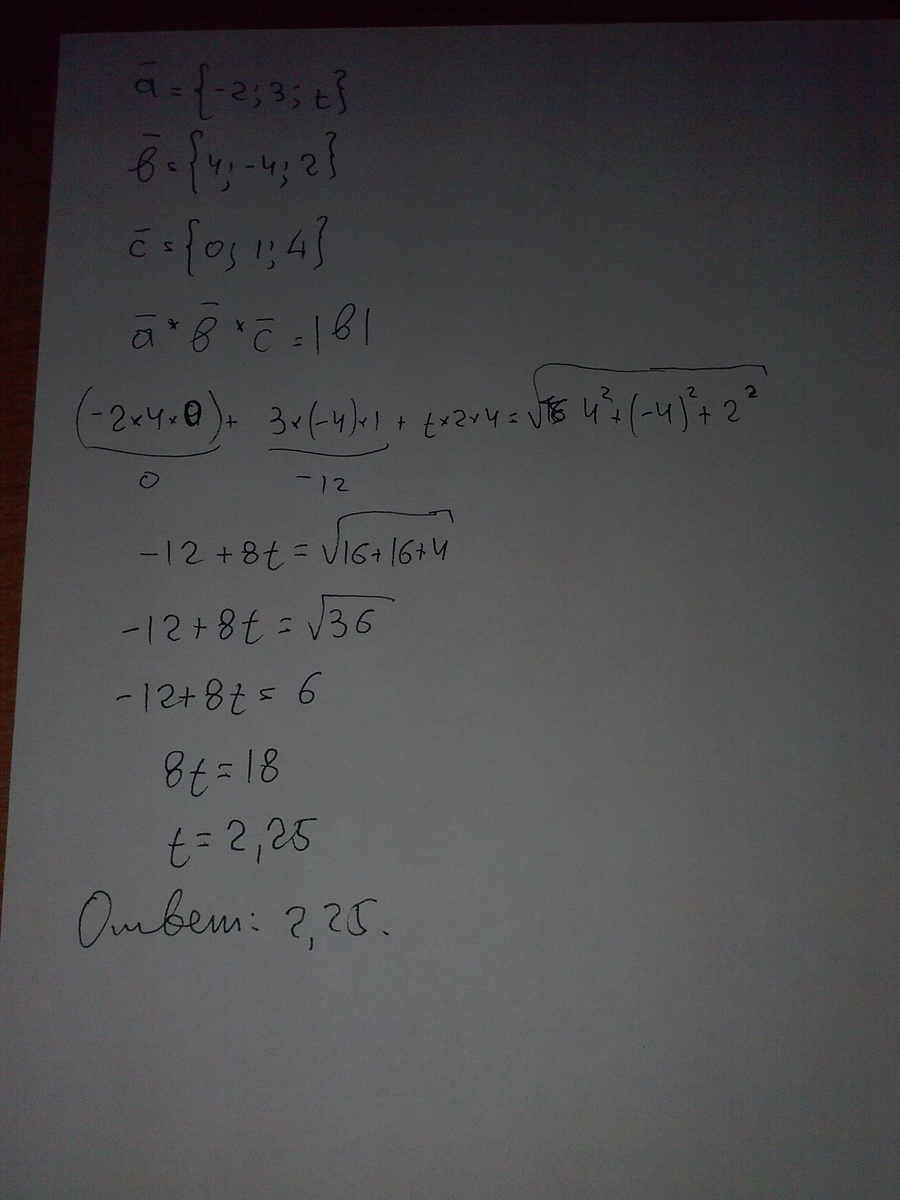 a̅ = {-2; 3; t}
b̅ = {4; -4; 2}
c̅ = {0; 1; 4}
a̅ * b̅ * c̅ = |b|
(-2×4×0) + 3×(-4)×1 + t×2×4 = √ 4² + (-4)² + 2²
0 -12
-12 + 8t = √16+16+4
-12 + 8t = √36
-12 + 8t = 6
8t = 18
t = 2,25
Ответ: 2,25.